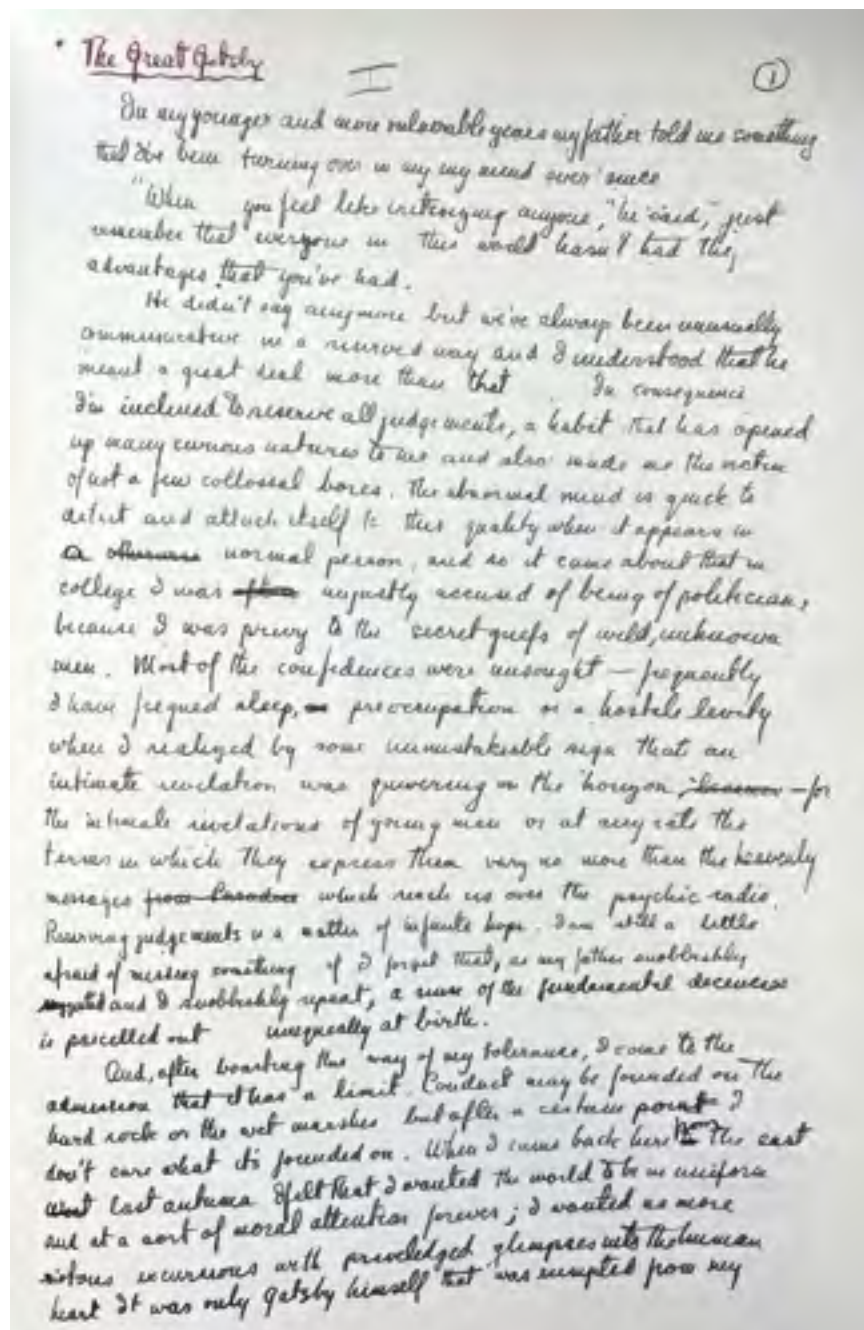 The Great Gatsby
I
1
In my younger and more vulnerable years my father told me something
that I've been turning over in my my mind ever since
"When you feel like critisizing anyone," he said, "just
remember that everyone in this world hasn't had the
advantages that you've had.
He didn't say anymore but we've always been unusually
communicative in a reserved way and I understood that he
meant a great deal more than that In consequence
I'm inclined to reserve all judgements, a habit that has opened
up many curious natures to me and also made me the victim
of not a few collossal bores. The abnormal mind is quick to
detect and attach itself to this quality when it appears in
a normal person, and so it came about that in
college I was unjustly accused of being of politician,
because I was privy to the secret griefs of wild, unknown
men. Most of the confidences were unsought — frequently
I have feigned sleep, preoccupation or a hostile levity
when I realized by some unmistakable sign that an
intimate revelation was quivering on the horizon — for
the intimate revelations of young men or at any rate the
terms in which they express them vary no more than the heavenly
messages from Paradise which reach us over the psychic radio.
Reserving judgements is a matter of infinite hope. I am still a little
afraid of missing something if I forget that, as my father snobbishly
suggested and I snobbishly repeat, a sense of the fundamental decencies
is parcelled out unequally at birth.
And, after boasting this way of my tolerance, I come to the
admission that it has a limit. Conduct may be founded on the
hard rock or the wet marshes but after a certain point I
don't care what it's founded on. When I came back here from the east
last autumn I felt that I wanted the world to be in uniform
and at a sort of moral attention forever; I wanted no more
riotous excursions with priveledged glimpses into the human
heart It was only Gatsby himself that was exempted from my